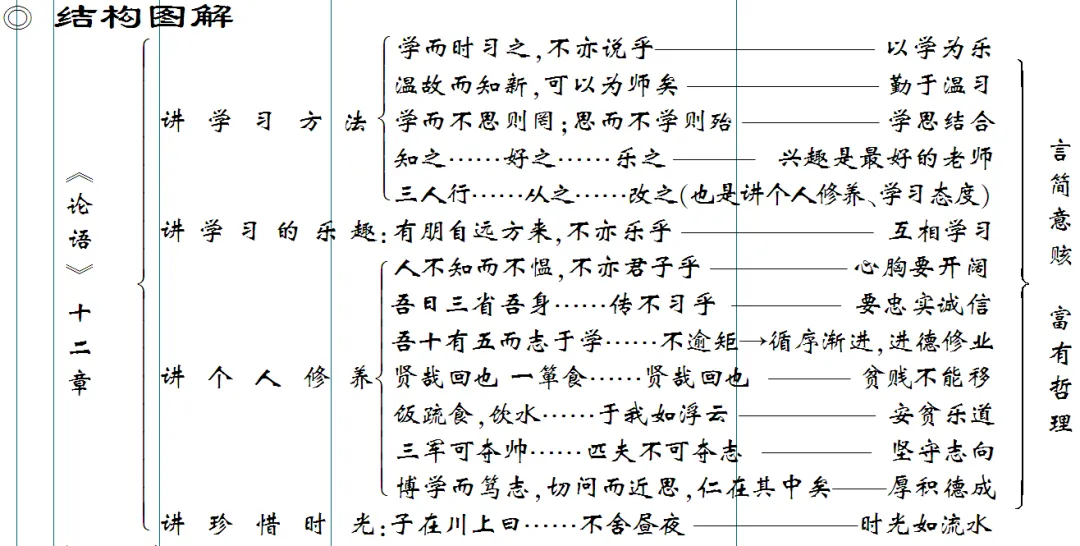 ◎ 结构图解
《论语》十二章
讲学习方法
学而时习之,不亦说乎——以学为乐
温故而知新,可以为师矣——勤于温习
学而不思则罔;思而不学则殆——学思结合
知之……好之……乐之——兴趣是最好的老师
三人行……从之……改之(也是讲个人修养、学习态度)
讲学习的乐趣:有朋自远方来,不亦乐乎——互相学习
讲个人修养
人不知而不愠,不亦君子乎——心胸要开阔
吾日三省吾身……传不习乎——要忠实诚信
吾十有五而志于学……不逾矩→循序渐进,进德修业
贤哉回也 一箪食……贤哉回也——贫贱不能移
饭疏食,饮水……于我如浮云——安贫乐道
三军可夺帅……匹夫不可夺志——坚守志向
博学而笃志,切问而近思,仁在其中矣——厚积德成
讲珍惜时光:子在川上曰……不舍昼夜——时光如流水
言简意赅 富有哲理